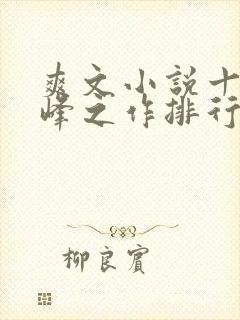 爽文小說十
峰之作排行
柳良賓